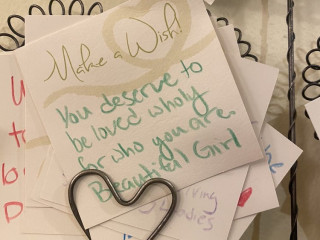 Make a Wish!
You deserve to
be loved wholy
for who you are.
Beautifull Girl